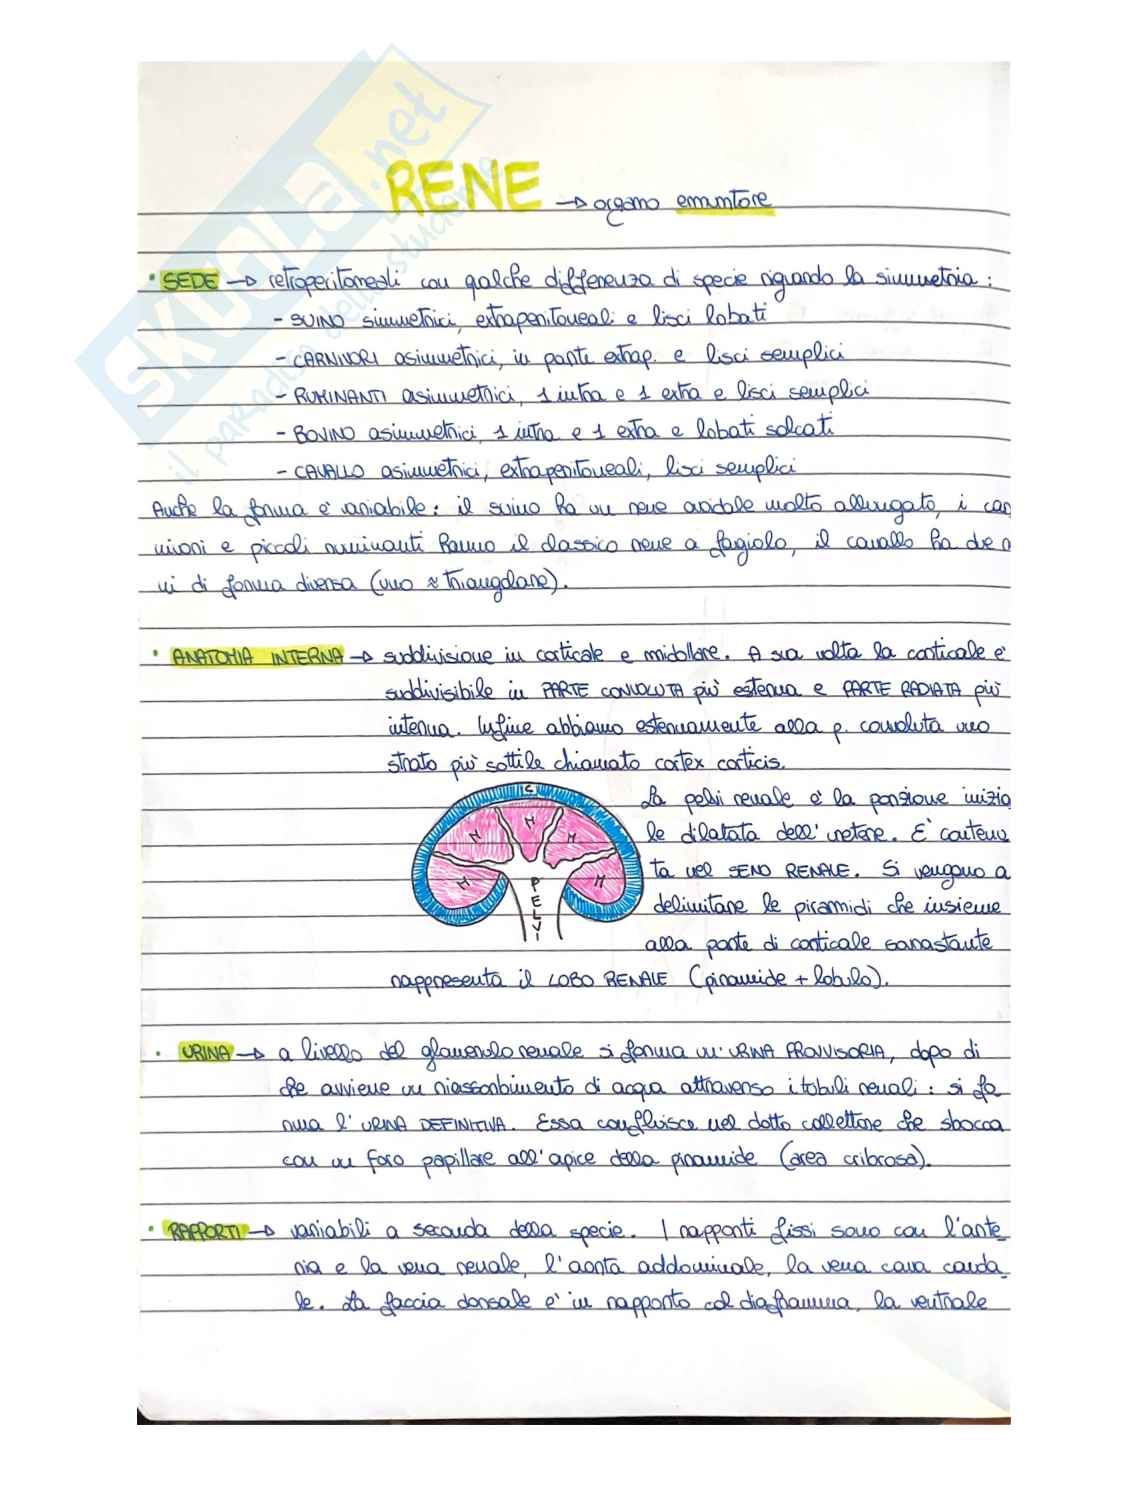 SKUOLA.net
il paradiso dello studente
RENE → organo emuntore
• SEDE → retroperitoneali con qalche differenza di specie riguardo la simmetria :
- SUINO simmetrici, extraperitoneali e lisci lobati
- CARNIVORI asimmetrici, in parte extrap. e lisci semplici
- RUMINANTI asimmetrici, 1 intra e 1 extra e lisci semplici
- BOVINO asimmetrici, 1 intra e 1 extra e lobati solcati
- CAVALLO asimmetrici, extraperitoneali, lisci semplici
Anche la forma è variabile : il suino ha un rene ovoidale molto allungato, i car
nivori e piccoli ruminanti hanno il classico rene a fagiolo, il cavallo ha due r
ni di forma diversa (uno ≈ triangolare).
• ANATOMIA INTERNA → suddivisione in corticale e midollare. A sua volta la corticale è
suddivisibile in PARTE CONVOLUTA più esterna e PARTE RADIATA più
interna. Infine abbiamo esternamente alla p. convoluta uno
strato più sottile chiamato cortex corticis.
La pelvi renale è la porzione inizia
le dilatata dell'uretere. È contenu
ta nel SENO RENALE. Si vengono a
delimitare le piramidi che insieme
alla parte di corticale sovrastante
rappresenta il LOBO RENALE (piramide + lobulo).
C
M
M
M
M
M
PELVI
• URINA → a livello del glomerulo renale si forma un'URINA PROVVISORIA, dopo di
che avviene un riassorbimento di acqua attraverso i tubuli renali : si fo
rma l'URINA DEFINITIVA. Essa confluisce nel dotto collettore che sbocca
con un foro papillare all'apice della piramide (area cribrosa).
• RAPPORTI → variabili a seconda della specie. I rapporti fissi sono con l'arte
ria e la vena renale, l'aorta addominale, la vena cava cauda
le. La faccia dorsale è in rapporto col diaframma, la ventrale